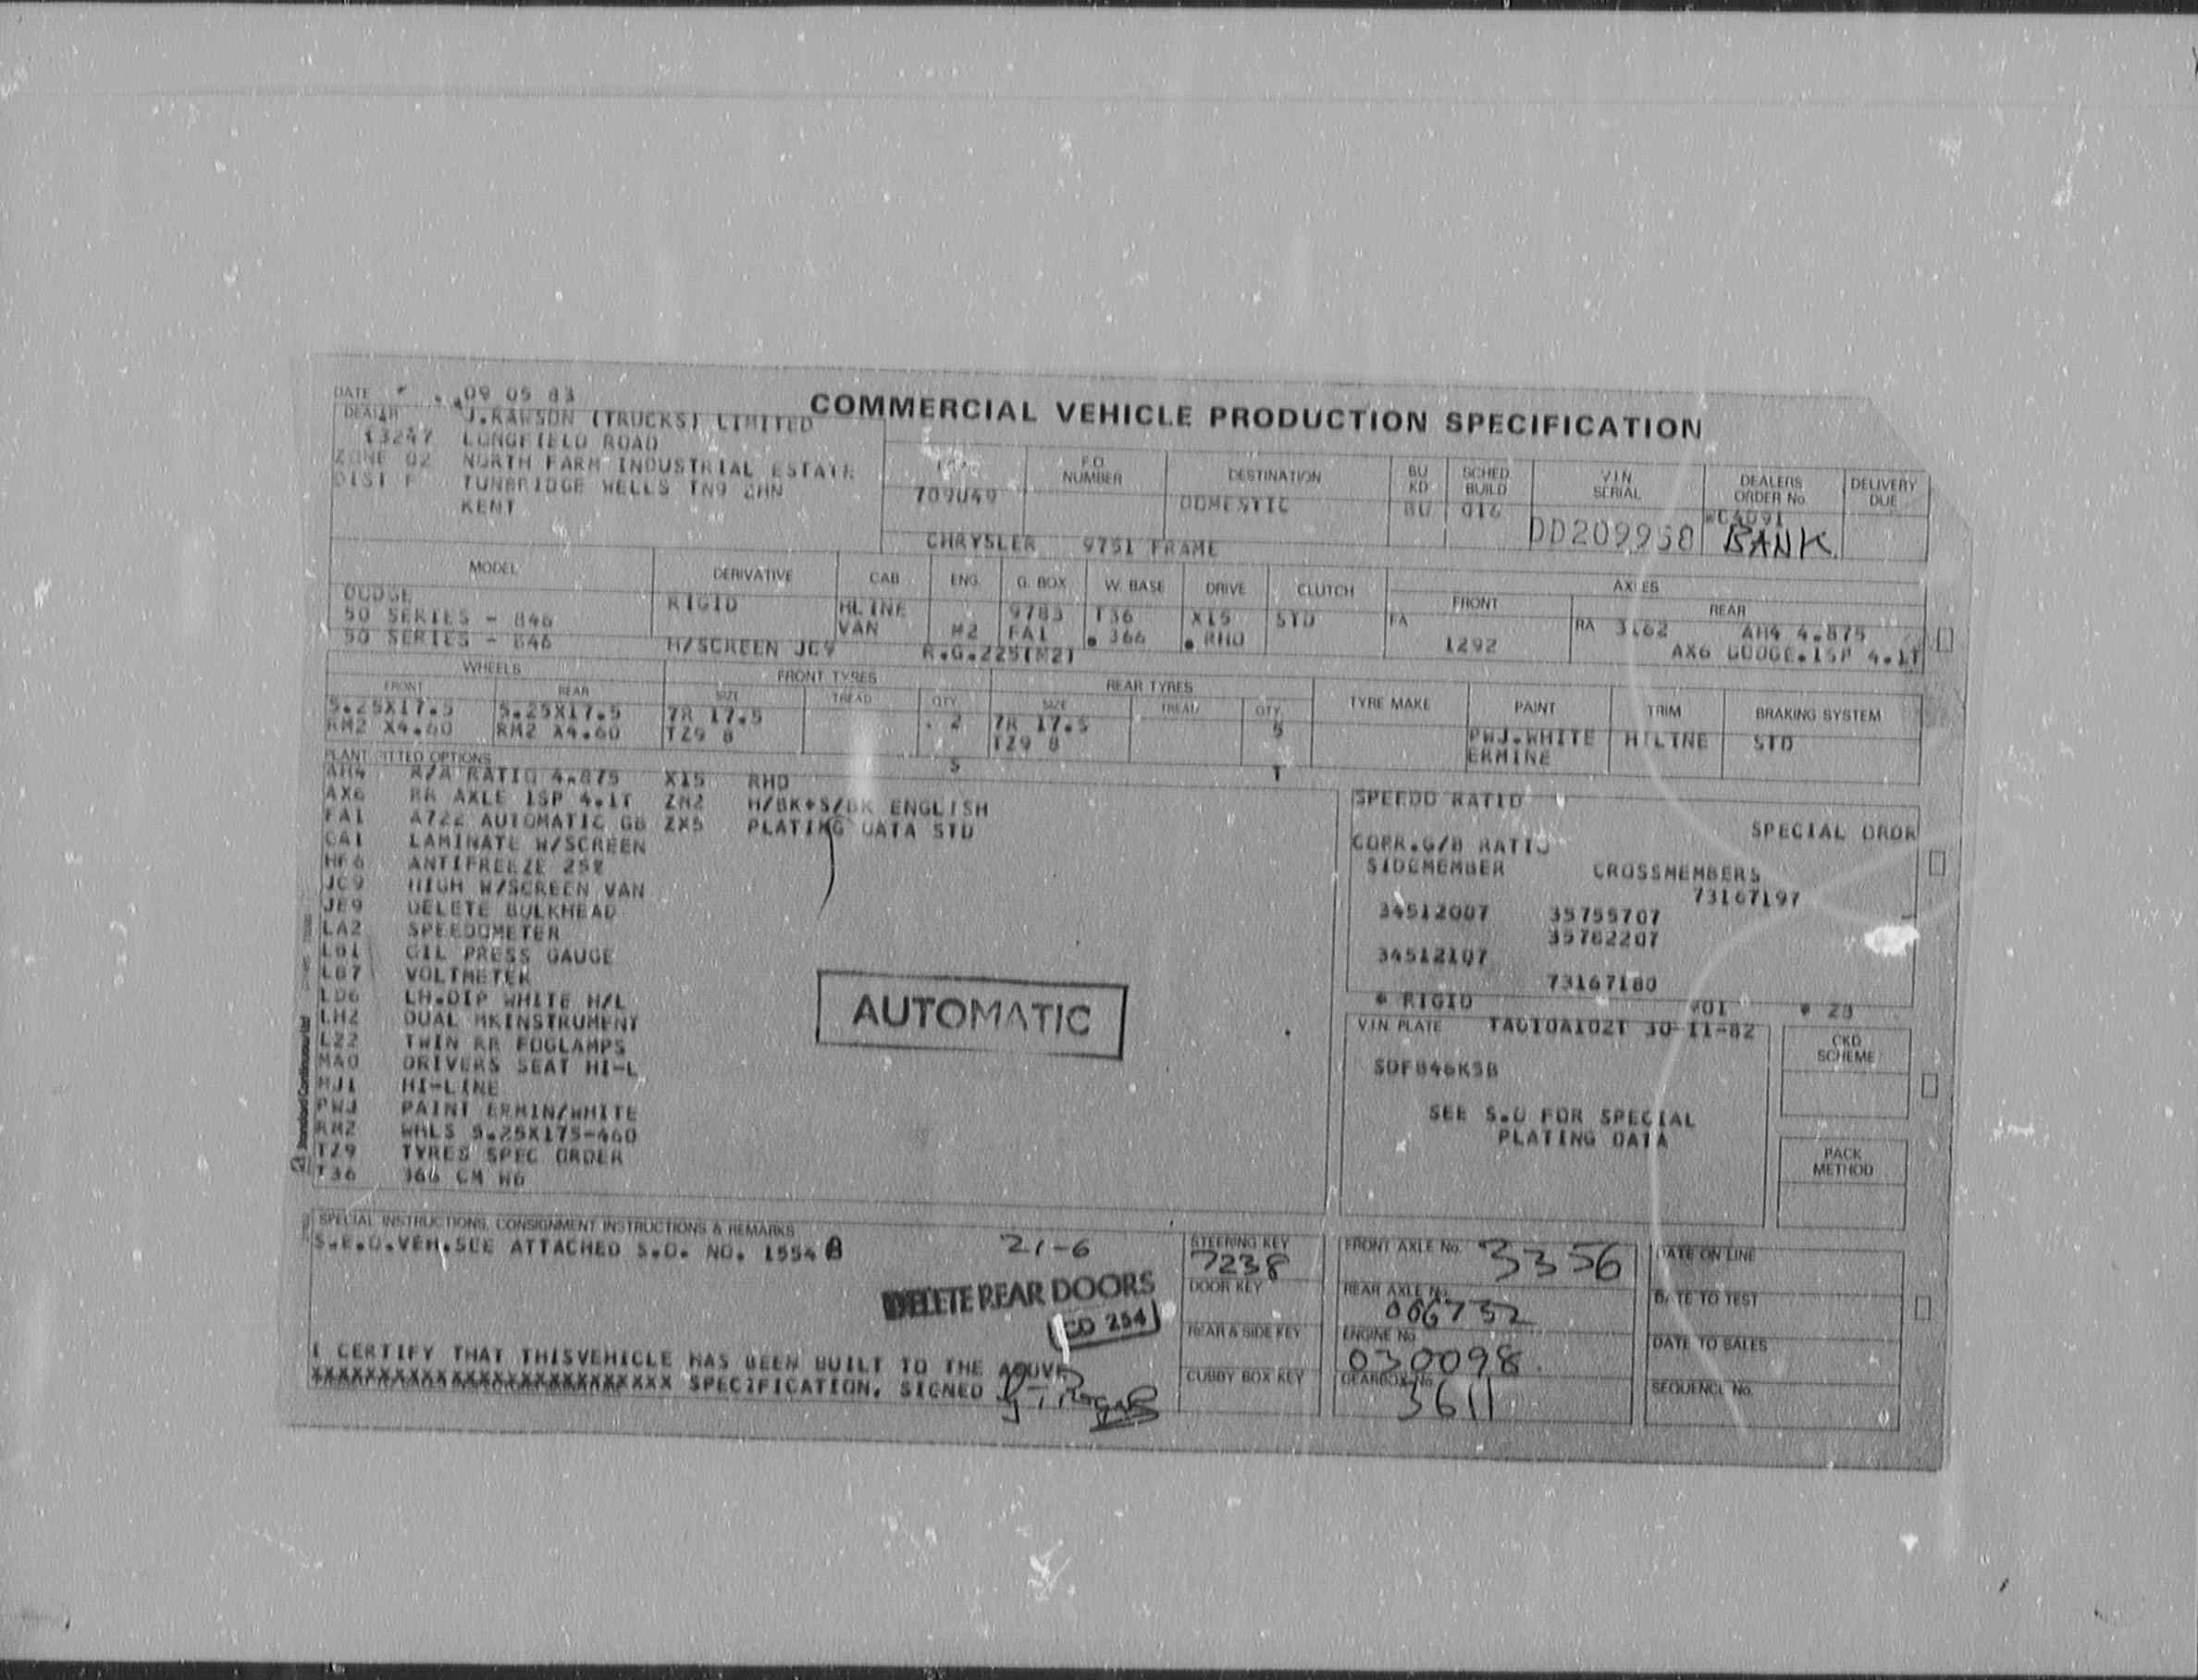 DATE 09 05 83
COMMERCIAL VEHICLE PRODUCTION SPECIFICATION
DEALER J.RAWSON (TRUCKS) LIMITED
13247 LONGFIELD ROAD
ZONE 02 NORTH FARM INDUSTRIAL ESTATE
DIST F TUNBRIDGE WELLS TN9 2HN
KENT
F.O. NUMBER DESTINATION BU KD SCHED BUILD VIN SERIAL DEALERS ORDER No. DELIVERY DUE
709049 DOMESTIC BU 016 DD209958 BANK
CHRYSLER 9751 FRAME
MODEL DERIVATIVE CAB ENG. G. BOX W. BASE DRIVE CLUTCH AXLES
FRONT REAR
DODGE RIGID HLINE 9783 T36 X15 STD FA RA 3162 AH4 4.875
50 SERIES - 846 VAN M2 FA1 . 366 . RHD 1292 AX6 DODGE.1SP 4.1T
50 SERIES - 846 H/SCREEN JC9 R.G.225(M2)
WHEELS FRONT TYRES REAR TYRES TYRE MAKE PAINT TRIM BRAKING SYSTEM
FRONT REAR SIZE TREAD QTY. SIZE TREAD QTY.
5.25X17.5 5.25X17.5 7R 17.5 . 2 7R 17.5 5 PWJ.WHITE HILINE STD
RM2 X4.60 RM2 X4.60 TZ9 8 TZ9 8 ERMINE
PLANT FITTED OPTIONS S T
AH4 R/A RATIO 4.875 X15 RHD
AX6 RR AXLE 1SP 4.1T ZH2 H/BK+S/BK ENGLISH
FA1 A722 AUTOMATIC GB ZX5 PLATING DATA STD
CA1 LAMINATE W/SCREEN
HF6 ANTIFREEZE 25%
JC9 HIGH W/SCREEN VAN
JE9 DELETE BULKHEAD
LA2 SPEEDOMETER
LB1 OIL PRESS GAUGE
LB7 VOLTMETER
LD6 LH.DIP WHITE H/L
LH2 DUAL MKINSTRUMENT
L22 TWIN RR FOGLAMPS
MA0 DRIVERS SEAT HI-L
MJ1 HI-LINE
PWJ PAINT ERMIN/WHITE
RM2 WHLS 5.25X175-460
TZ9 TYRES SPEC ORDER
T36 366 CM WB
AUTOMATIC
SPEEDO RATIO
SPECIAL ORDR
CORR.G/B RATIO
SIDEMEMBER CROSSMEMBERS
73167197
34512007 35755707
35762207
34512107
73167180
* RIGID *01 * 23
V.I.N. PLATE TAO10A102T 30-11-82
CKD SCHEME
SDF846K5B
SEE S.O FOR SPECIAL
PLATING DATA
PACK METHOD
Standard Continuous Ltd
SPECIAL INSTRUCTIONS, CONSIGNMENT INSTRUCTIONS & REMARKS
S.E.O.VEH.SEE ATTACHED S.O. NO. 1554 B
21-6
DELETE REAR DOORS
CD 254
I CERTIFY THAT THISVEHICLE HAS BEEN BUILT TO THE ABOVE
XXXXXXXXXXXXXXXXXXXXXXXXXXX SPECIFICATION. SIGNED
STEERING KEY 7238
DOOR KEY
REAR & SIDE KEY
CUBBY BOX KEY
FRONT AXLE No. 3356
REAR AXLE No. 006732
ENGINE No. 030098
GEARBOX No. 3611
DATE ON LINE
DATE TO TEST
DATE TO SALES
SEQUENCE No.